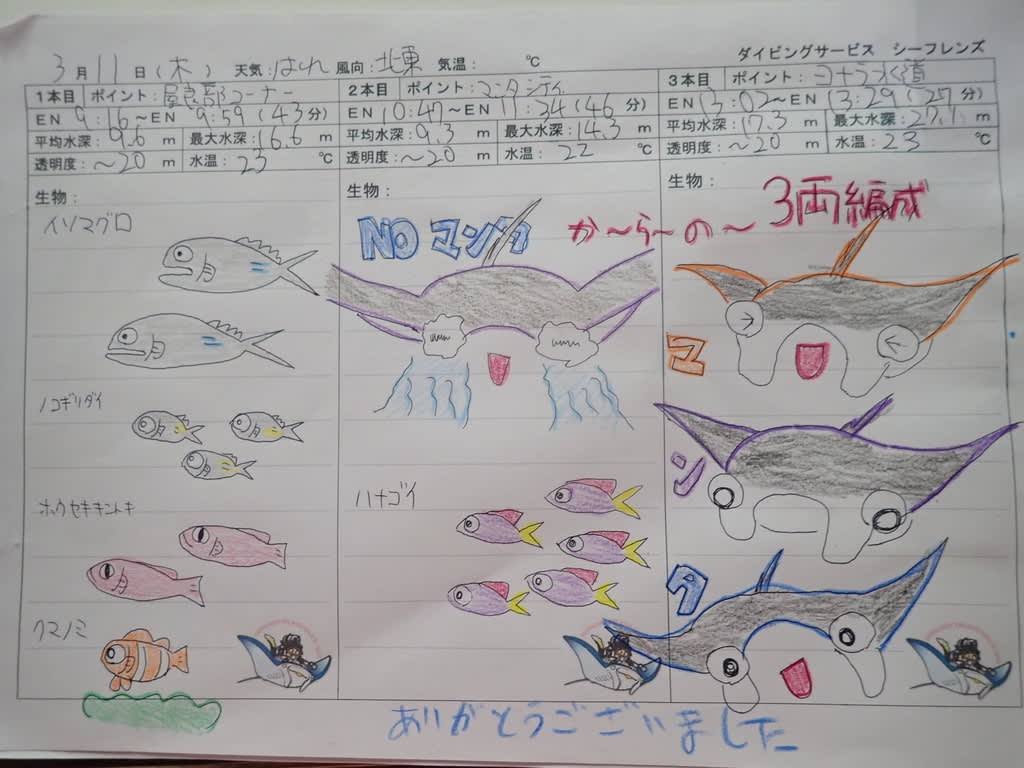 ダイビングサービス シーフレンズ
3月11日(木) 天気:はれ 風向:北東 気温: ℃
1本目 ポイント:屋良部コーナー
EN 9:16~EN 9:59(43分)
平均水深:9.6m 最大水深:16.6m
透明度:~20m 水温:23℃
生物:
イソマグロ
ノコギリダイ
ホウセキキントキ
クマノミ
2本目 ポイント:マンタシティ
EN 10:47~EN 11:34(46分)
平均水深:9.3m 最大水深:14.3m
透明度:~20m 水温:22℃
生物:
NO マンタ
ハナゴイ
3本目 ポイント:ヨナラ水道
EN 13:02~EN 13:29(27分)
平均水深:17.3m 最大水深:27.1m
透明度:~20m 水温:23℃
生物:
か~ら~の~3両編成
マ
ン
タ
ありがとうございました